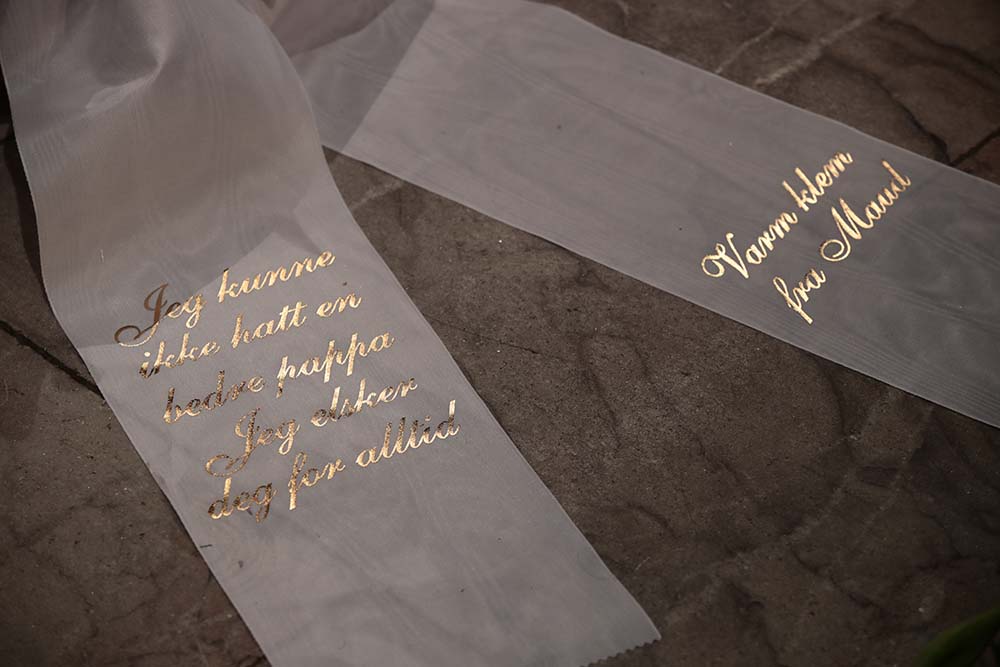 Jeg kunne
ikke hatt en
bedre pappa
Jeg elsker
deg for alltid
Varm klem
fra Maud